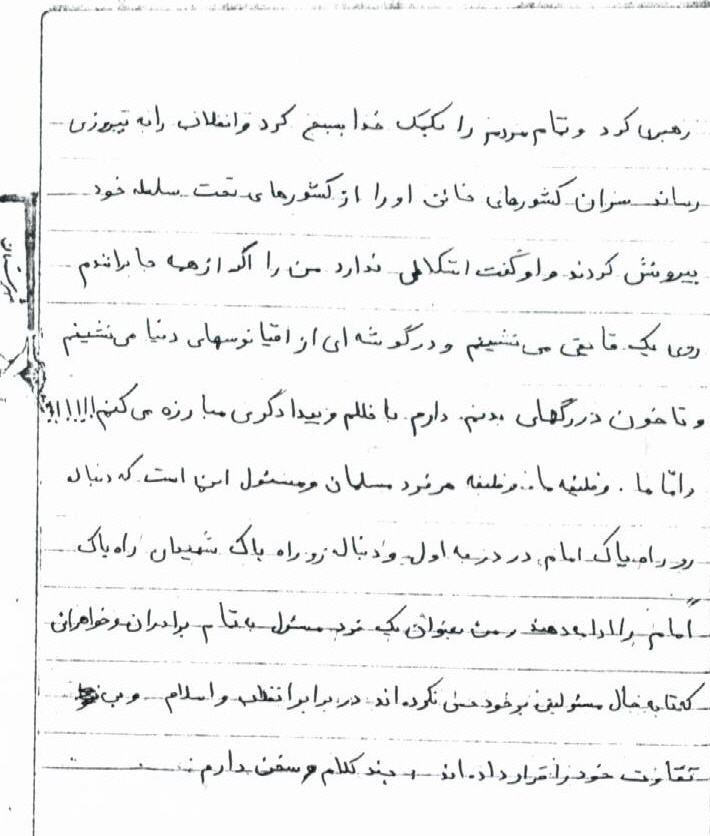 رهبری کرد و تمام مردم را بکمک خدا بسیج کرد و انقلاب را به پیروزی
رساند سران کشورهای خائن او را از کشورهای تحت سلطه خود
بیرونش کردند و او گفت اشکالی ندارد من را اگر از همه جا برانندم
روی یک قایقی می‌نشینم و در گوشه ای از اقیانوسهای دنیا می‌نشینم
و تا خون در رگهای بدنم دارم با ظلم و بیدادگری مبارزه می‌کنم!!!!!!
و امّا ما . وظیفه ما و وظیفه هر فرد مسلمان و مسئول این است که دنبال
رو راه پاک امام در درجه اول و دنبال رو راه پاک شهیدان راه پاک
امام را ادامه دهند و من بعنوان یک فرد مسئول به تمام برادران و خواهرانی
که تا به حال مسئولیتی بر خود حس نکرده اند در برابر انقلاب و اسلام و
تفاوت خود را قرار داده اند ، چند کلام و سخن دارم .